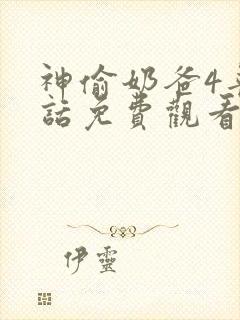 神偷奶爸4粵
話免費觀看
伊靈